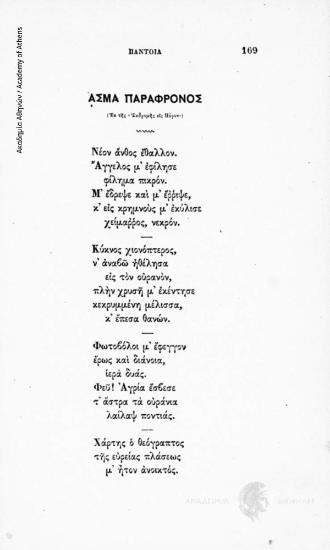 Ακαδημία Αθηνών / Academy of Athens
ΠΑΝΤΟΙΑ 169
ΑΣΜΑ ΠΑΡΑΦΡΟΝΟΣ
(Ἐκ τῆς «Ἐκδρομῆς εἰς Πόρον»)
Νέον ἄνθος ἔθαλλον.
Ἄγγελος μ' ἐφίλησε
φίλημα πικρόν.
Μ' ἔδρεψε καὶ μ' ἔῤῥιψε,
κ' εἰς κρημνοὺς μ' ἐκύλισε
χείμαῤῥος, νεκρόν.
Κύκνος χιονόπτερος,
ν' ἀναβῶ ἠθέλησα
εἰς τὸν οὐρανόν,
πλὴν χρυσῆ μ' ἐκέντησε
κεκρυμμένη μέλισσα,
κ' ἔπεσα θανών.
Φωτοβόλοι μ' ἔφεγγον
ἔρως καὶ διάνοια,
ἱερὰ δυάς.
Φεῦ! Ἀγρία ἔσβεσε
τ' ἄστρα τὰ οὐράνια
λαίλαψ ποντιάς.
Χάρτης ὁ θεόγραπτος
τῆς εὐρείας πλάσεως
μ' ἦτον ἀνοικτός.
ΑΚΑΔΗΜΙΑ ΑΘΗΝΩΝ